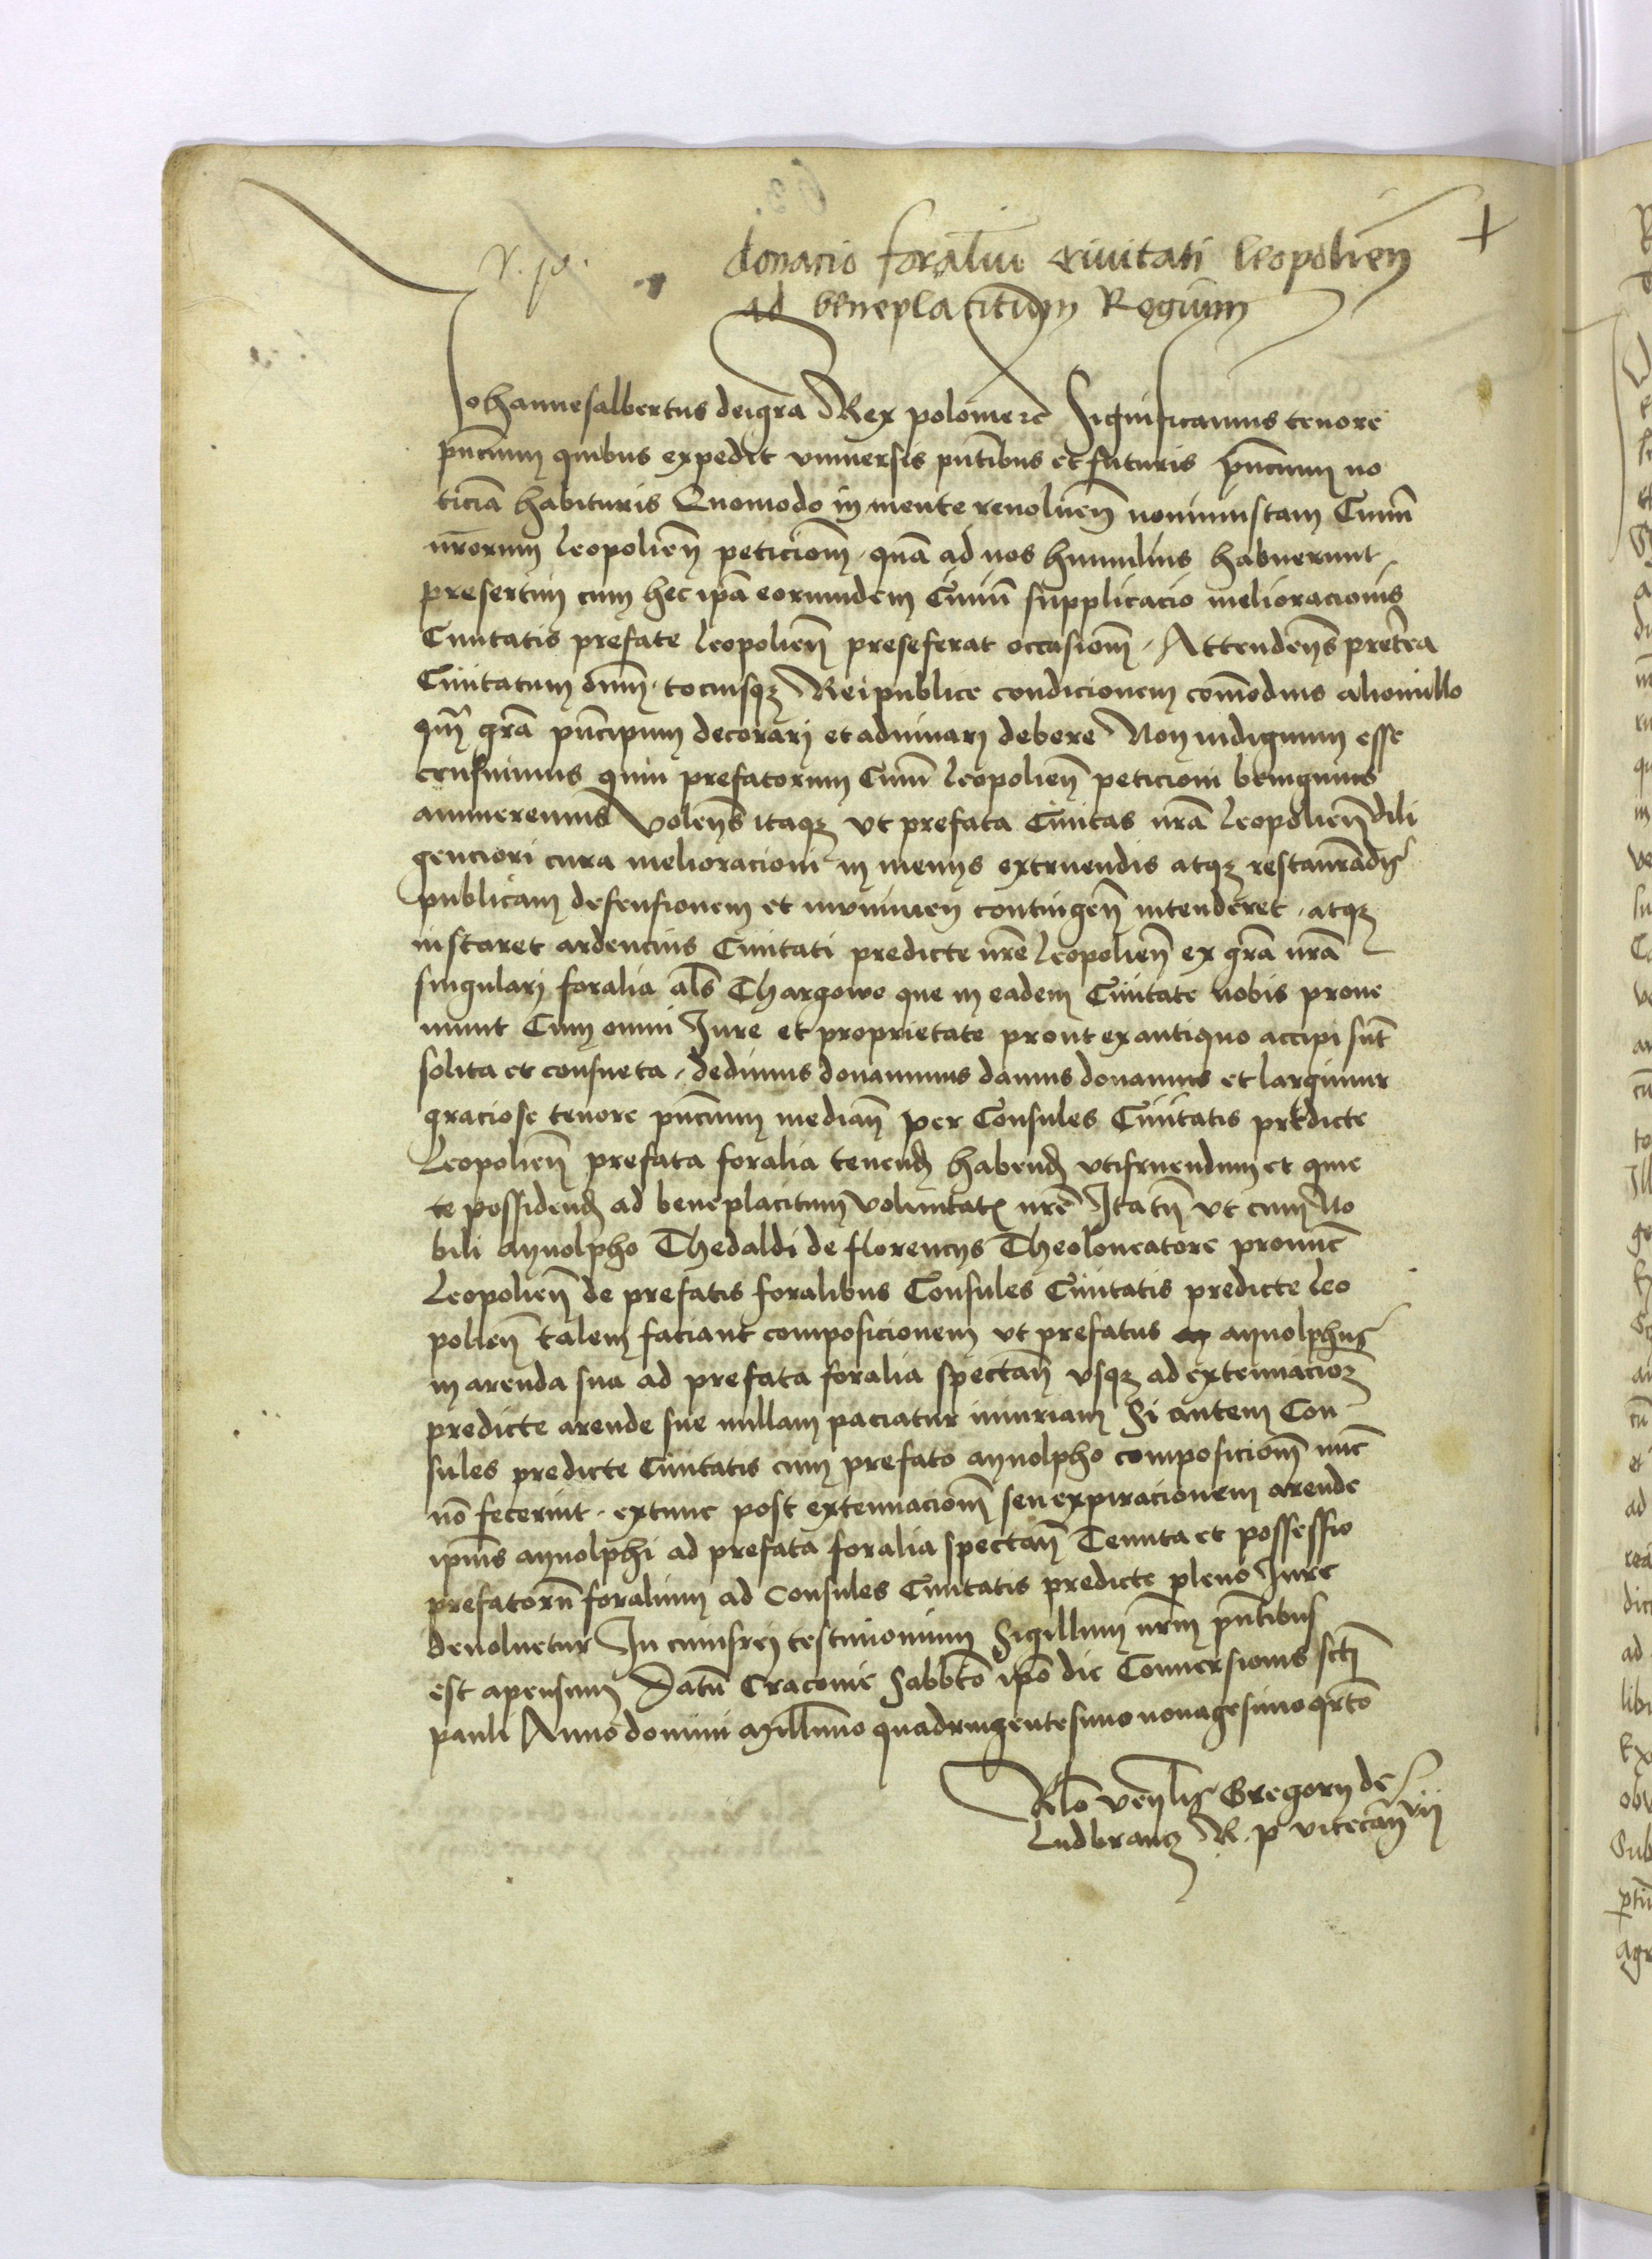 donacio foraliu civitati leopolien
ad beneplacitum Regium
Johannesalbertus dei gra Rex polonie ic Significamus tenore
pncium quibus expedit vniuersis pntibus et futuris pncium no
ticia habituris Quomodo in mente reuoluen non iniustam Ciuiu
nrorum leopolien peticiom, qua ad nos humilius habuerunt
presertim cum hec ipa eorumdem Ciuiu supplicacio melioracionis
Ciuitatis prefate leopolien preseferat occasiom, Attendens preterea
Ciuitatum oium, tociusq Reipublice condicionem comodius alio nullo
qm gra pncipum decorari et adiuuari debere Non indignum esse
censuimus quin prefatorum Ciuiu leopolien peticioni benignius
annueremus Volens itaq vt prefata Ciuitas nra leopolien dili
genciori cura melioracioni in menijs extruendis atq restaurandis
publicam defensionem et munimen contingen intenderet, atq
instaret ardencius Ciuitati predicte nre leopolien ex gra nra
singulari foralia als Thargowe que in eadem Ciuitate nobis proue
niunt Cum omni Jure et proprietate prout exantiquo accipi sut
solita et consueta, dedimus donauimus damus donamus et largimur
graciose tenore pncium median per Consules Ciuitatis predicte
Leopolien prefata foralia tenend habend vtifruendum et quie
te possidend ad beneplacitum voluntatis nre Ita tn vt cum No
bili aynolpho Thedaldi de florencijs Theoloneatore pronuc
Leopolien de prefatis foralibus Consules Ciuitatis predicte leo
polien talem faciant composicionem vt prefatus aynolphus
in arenda sua ad prefata foralia spectan vsq ad extenuacioem
predicte arende sue nullam paciatur iniuriam Si autem Con
sules predicte Ciuitatis cum prefato aynolpho composiciom nuc
no fecerint, extunc post extenuaciom seu expiracionem arende
ipius aynolphi ad prefata foralia spectan Tenuta et possessio
prefatoru foralium ad Consules Ciuitatis predicte pleno Jure
deuoluetur In cuiusrei testimonium Sigillum nrm pntibus
est apensum Datu Cracouie Sabbto ipo die Conuersionis scti
pauli Anno domini Millimo quadringentesimo nonagesimo qrto
Relo venlis Gregorij de
Ludbrancz R. p vicecan rij